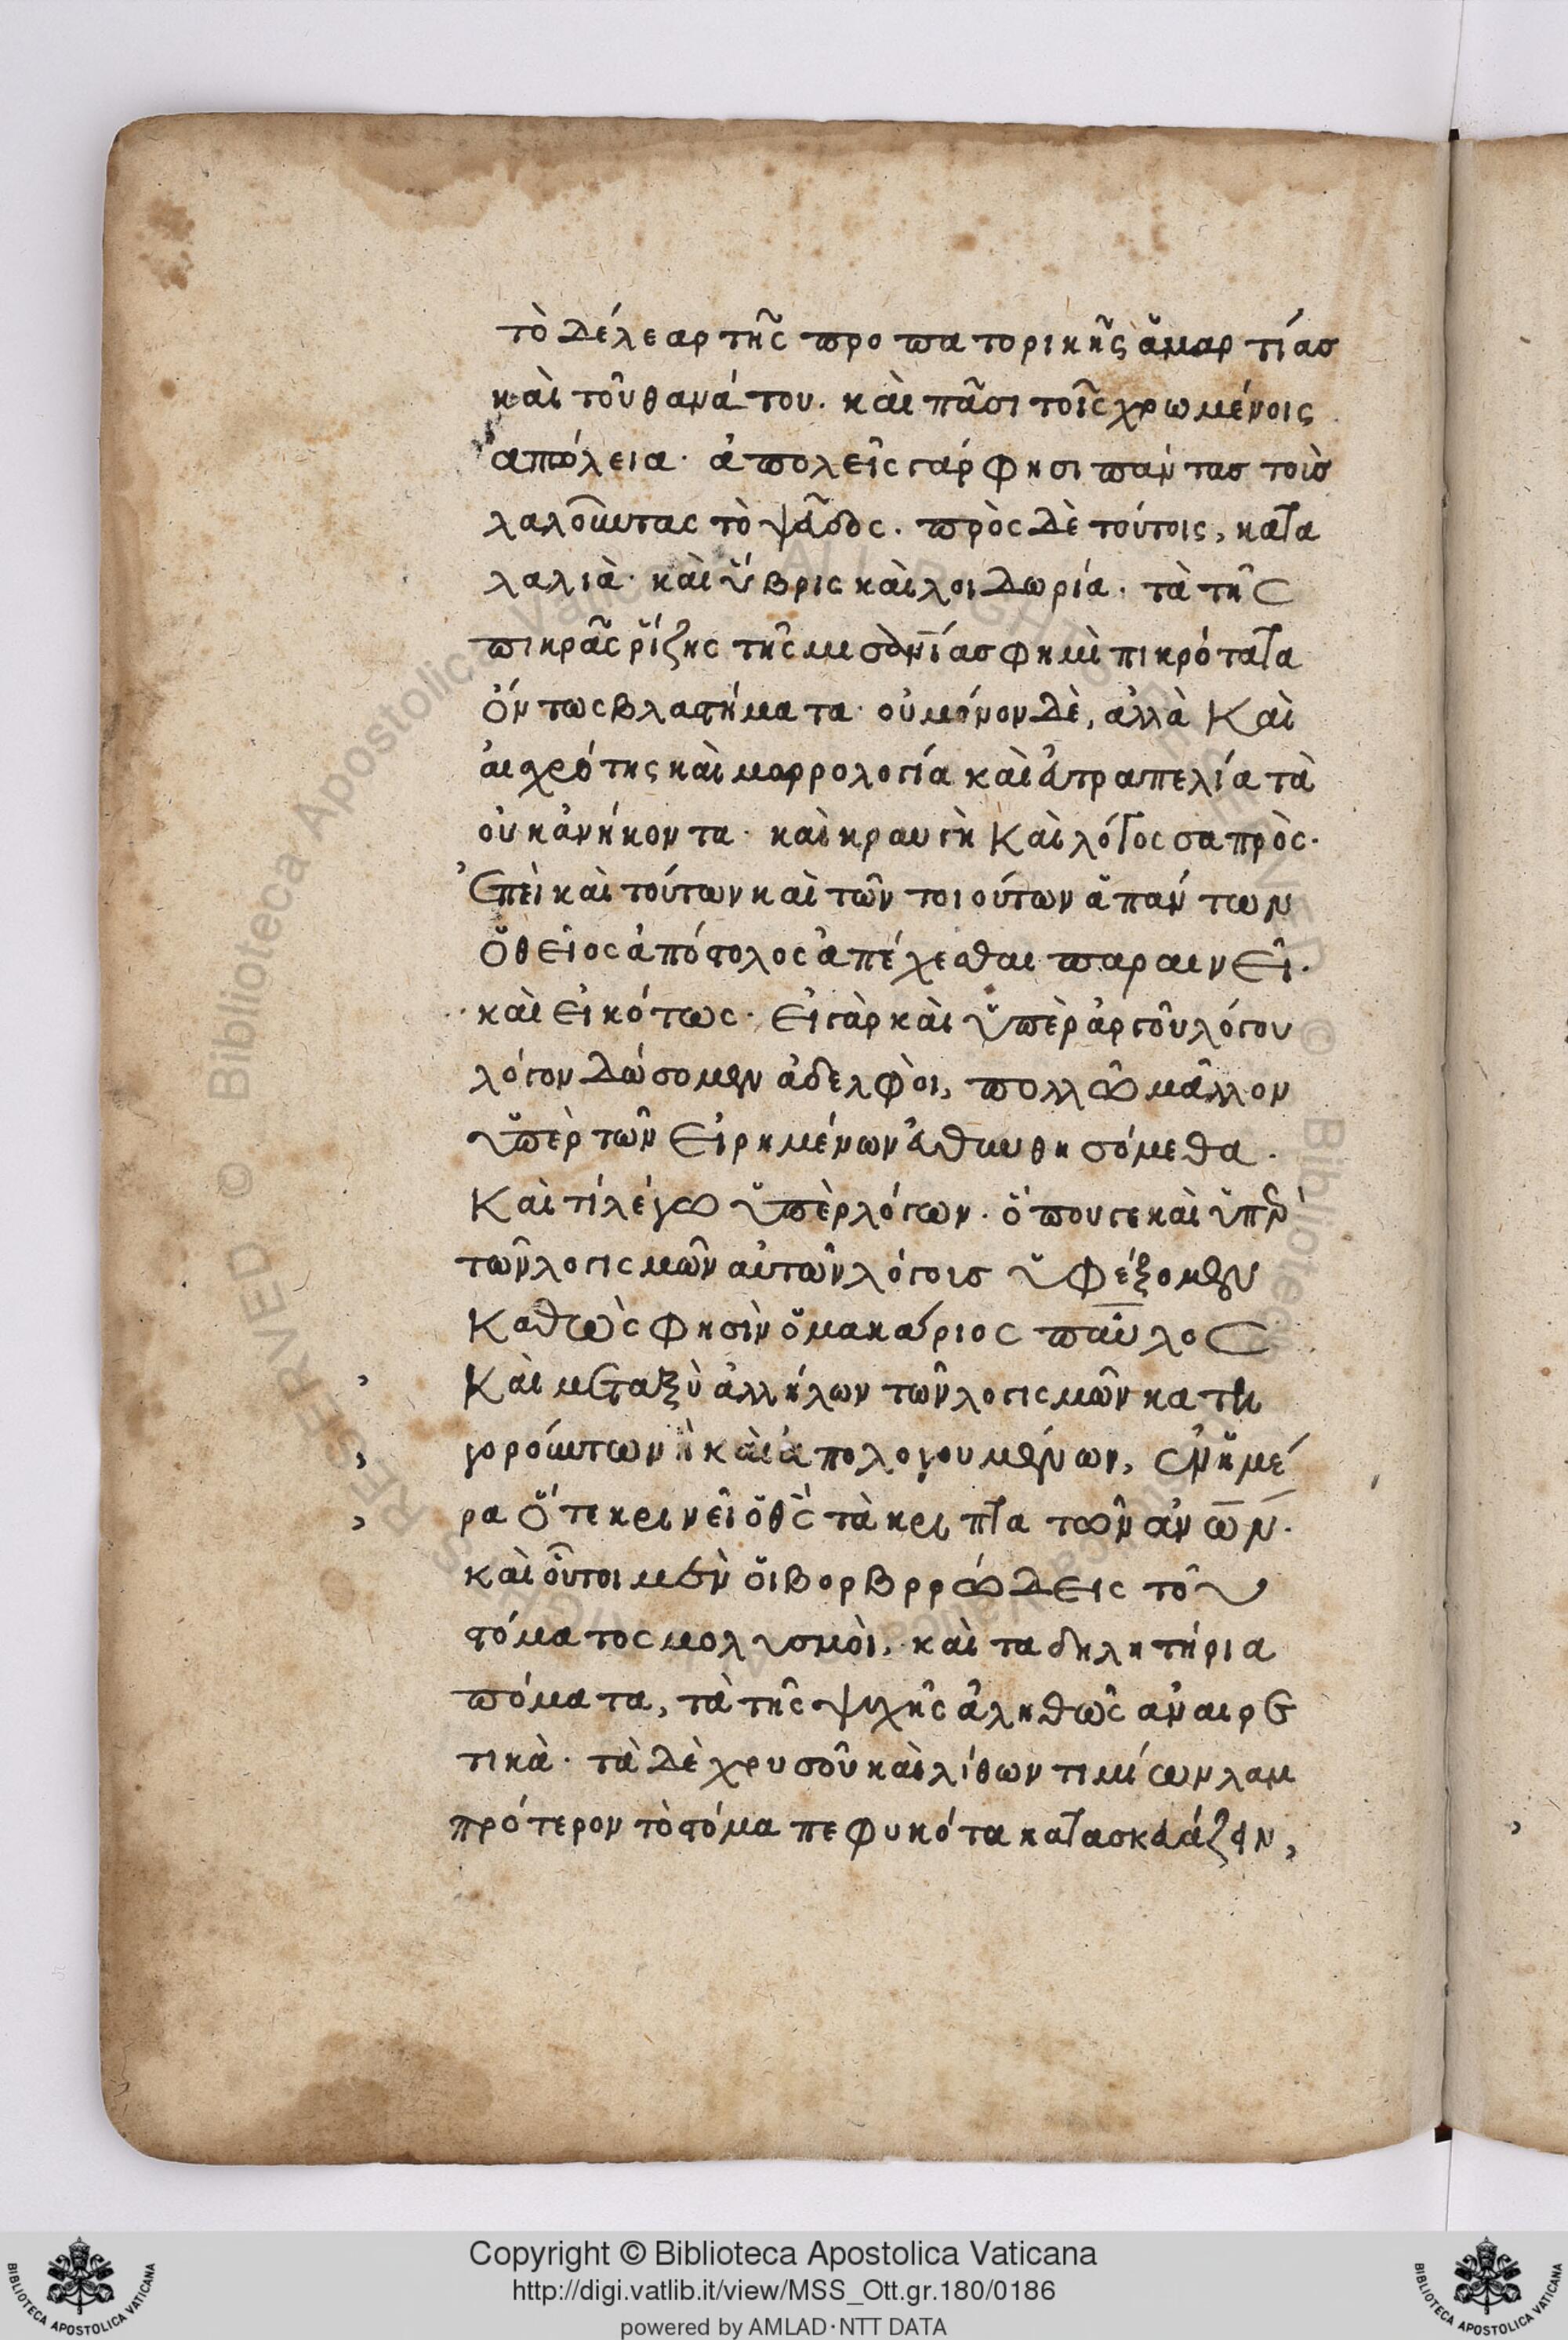 τὸ δέλεαρ τῆς προπατορικῆς ἁμαρτίας
καὶ τοῦ θανάτου. καὶ πᾶσι τοῖς χρωμένοις
ἀπώλεια· ἀπολεῖς γάρ φησι πάντας τοὺς
λαλοῦντας τὸ ψεῦδος. πρὸς δὲ τούτοις, κατα
λαλιὰ· καὶ ὕβρις καὶ λοιδωρία. τὰ τῆς
πικρᾶς ῥίζης τῆς μεσονίας φημὶ πικρότατα
ὄντως βλαστήματα· οὐ μόνον δὲ, ἀλλὰ Καὶ
αἰσχρότης καὶ μωρρολογία καὶ εὐτραπελία τὰ
οὐκ ἀνήκοντα· καὶ κραυγὴ Καὶ λόγος σαπρὸς.
Ἐπεὶ καὶ τούτων καὶ τῶν τοιούτων ἁπάντων
ὁ θεῖος ἀπόστολος ἀπέχεσθαι παραινεῖ.
καὶ εἰκότως· εἰ γὰρ καὶ ὑπὲρ ἀργοῦ λόγου
λόγον δώσομεν ἀδελφοὶ, πολλῶ μᾶλλον
ὑπὲρ τῶν εἰρημένων εὐθυνθησόμεθα.
Καὶ τί λέγω ὑπὲρ λόγων. ὅπου γε καὶ ὑπὲρ
τῶν λογισμῶν αὐτῶν λόγοις ὑφέξομεν
Καθὼς φησὶν ὁ μακάριος παῦλος
Καὶ μεταξὺ ἀλλήλων τῶν λογισμῶν κατη
γορούντων ἢ καὶ ἀπολογουμένων, ἐν ἡμέ
ρα ὅτε κρινεῖ ὁ θς τὰ κρυπτα τῶν ἀνων.
καὶ οὗτοι μὲν οἱ βορβρρώδεις τοῦ
στόματος μολυσμοὶ, καὶ τα δηλητήρια
πόματα, τὰ τῆς ψυχῆς ἀληθῶς ἀναιρε
τικὰ. τὰ δὲ χρυσοῦ καὶ λίθων τιμίων λαμ
πρότερον τὸ στόμα πεφυκότα κατασκευάζειν,
Copyright © Biblioteca Apostolica Vaticana
http://digi.vatlib.it/view/MSS_Ott.gr.180/0186
powered by AMLAD·NTT DATA
BIBLIOTECA APOSTOLICA VATICANA
BIBLIOTECA APOSTOLICA VATICANA